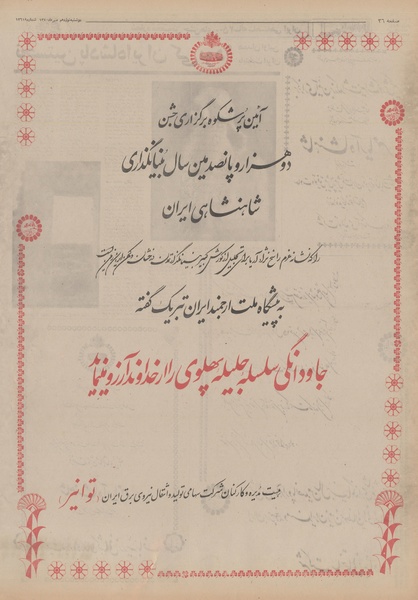 صفحه ۲۶
آئین پرشکوه برگزاری جشن
دو هزار و پانصدمین سال بنیانگذاری
شاهنشاهی ایران
را که نشانه عزم راسخ نژاد آریا برای تجلیل از کورش کبیر
به پیشگاه ملت ارجمند ایران تبریک گفته
جاودانگی سلسله جلیله پهلوی را از خداوند آرزو مینماید
هیئت مدیره و کارکنان شرکت سهامی تولید و انتقال نیروی برق ایران (توانیر)